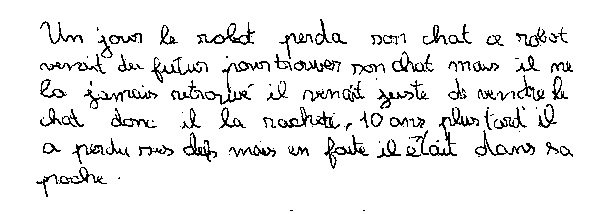 Un jour le robot perda son chat ce robot
venait du futur pour trouver son chat mais il ne
la jamais retrouvé il venait juste de vendre le
chat donc il la racheté, 10 ans plus tard il
a perdu ses clefs mais en faite il était dans sa
poche.